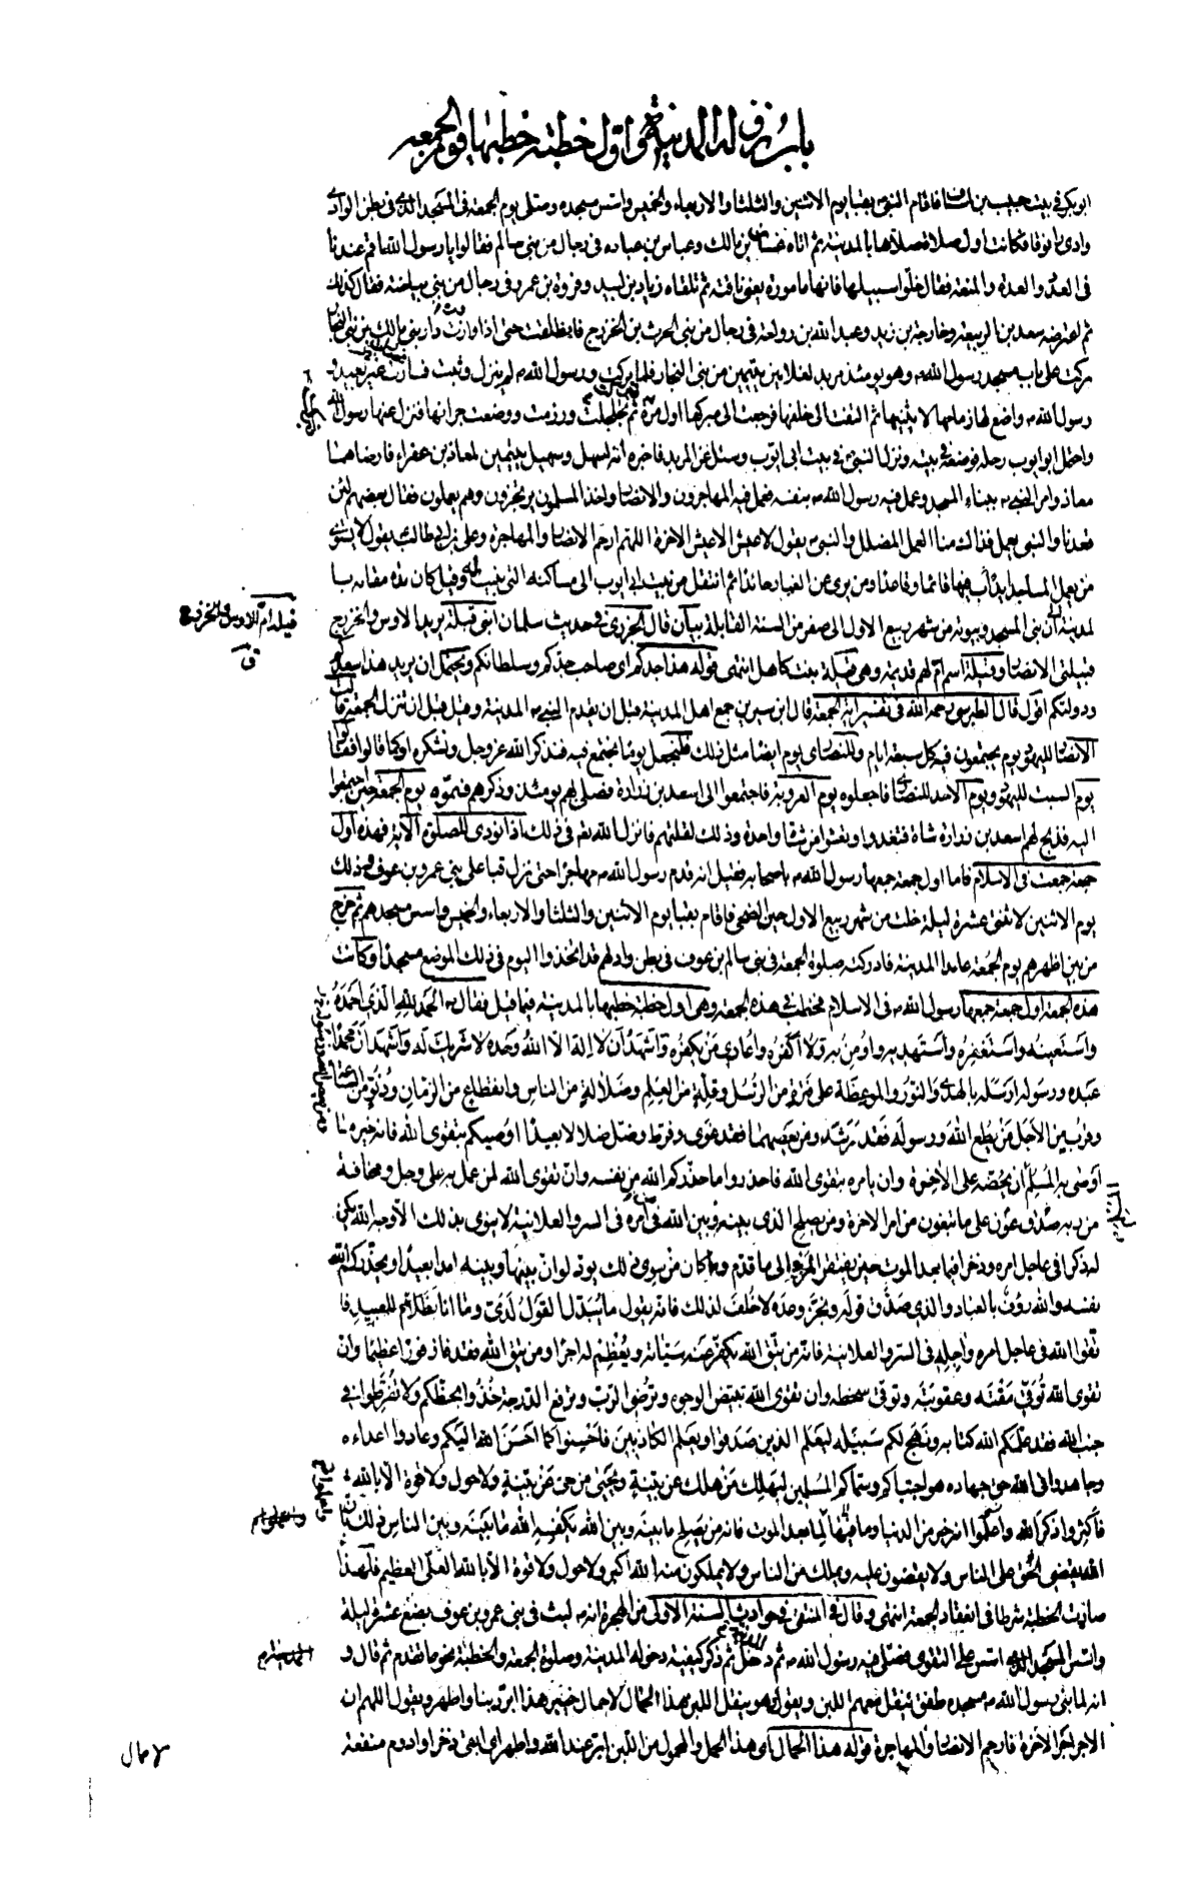 باب نزوله المدينة واول خطبة خطبها في الجمعة
ابو بكر في بيت حبيب بن اساف فاقام النبي ص بقبا يوم الاثنين والثلثا والاربعاء والخميس واسس مسجده وصلى يوم الجمعة في المسجد الذي في بطن الوادي
وادي رانوقا فكانت اول صلاة صلاها بالمدينة ثم اتاه بن مالك وعباس بن عباده في رجال من بني سالم فقالوا يا رسول الله اقم عندنا
في العدد والعدة والمنعة فقال خلوا سبيلها فانها مامورة يعني ناقته ثم تلقاه زياد بن لبيد وفروة بن عمرو في رجال من بني بياضة فقال كذلك
ثم اعترضه سعد بن الربيع وخارجة بن زيد وعبد الله بن رواحة في رجال من بني الحرث بن الخزرج فانطلقت حتى اذا وازنت دار بني مالك بن النجار
بركت على باب مسجد رسول الله ص وهو يومئذ مربد لغلامين يتيمين من بني النجار فلما بركت ورسول الله ص لم ينزل وثبت فسارت غير بعيد و
رسول الله ص واضع لها زمامها لا يثنيها ثم التفت الى خلفها فرجعت الى مبركها اول مرة ثم تحلحلت ورزمت ووضعت جرانها فنزل عنها رسول الله
واحتمل ابو ايوب رحله فوضعه في بيته ونزل النبي ص في بيت ابي ايوب وسئل عن المربد فاخبره انه لسهل وسهيل يتيمين لمعاذ بن عفراء فارضاهما
معاذ وامر النبي ص ببناء المسجد وعمل فيه رسول الله ص بنفسه فعمل فيه المهاجرون والانصار واخذ المسلمون يرتجزون وهم يعملون فقال بعضهم لئن
قعدنا والنبي يعمل فذاك منا العمل المضلل والنبي ص يقول لا عيش الا عيش الاخرة اللهم ارحم الانصار والمهاجرة وعلي بن ابي طالب يقول لا يستوي
من يعمل المساجد يدأب فيها قائما وقاعدا ومن يرى عن الغبار حائدا ثم انتقل من بيت ابي ايوب الى مساكنه التي بنيت له وقيل كان مدة مقامه با
لمدينة الى ان بنى المسجد وبيوته من شهر ربيع الاول الى صفر من السنة القابلة بيان قال الجزري في حديث سلمان ابني قيلة يريد الاوس والخزرج
قبيلتي الانصار وقيلة اسم ام لهم قديمة وهي قيلة بنت كاهل انتهى قوله هذا جدكم اي صاحب جدكم وسلطانكم ويحتمل ان يريد هذا سعدكم
ودولتكم اقول قال الطبرسي رحمه الله في تفسير اية الجمعة قال ابن سيرين جمع اهل المدينة قبل ان يقدم النبي ص المدينة وقيل قبل ان تنزل الجمعة قالت
الانصار لليهود يوم يجتمعون فيه كل سبعة ايام وللنصارى يوم ايضا مثل ذلك فلنجعل يوما نجتمع فيه فنذكر الله عز وجل ونشكره او كما قالوا فقالوا
يوم السبت لليهود ويوم الاحد للنصارى فاجعلوه يوم العروبة فاجتمعوا الى اسعد بن زرارة فصلى بهم يومئذ وذكرهم فسموه يوم الجمعة حين اجتمعوا
اليه فذبح لهم اسعد بن زرارة شاة فتغدوا وتعشوا من شاة واحدة وذلك لقلتهم فانزل الله تعالى في ذلك اذا نودي للصلوة الاية فهذه اول
جمعة جمعت في الاسلام فاما اول جمعة جمعها رسول الله ص باصحابه فقيل انه قدم رسول الله ص مهاجرا حتى نزل قبا على بني عمرو بن عوف وذلك
يوم الاثنين لاثنتي عشرة ليلة خلت من شهر ربيع الاول حين الضحى فاقام بقبا يوم الاثنين والثلثا والاربعاء والخميس واسس مسجدهم ثم خرج
من بين اظهرهم يوم الجمعة عامدا المدينة فادركته صلوة الجمعة في بني سالم بن عوف في بطن واد لهم قد اتخذوا اليوم في ذلك الموضع مسجدا وكانت
هذه الجمعة اول جمعة جمعها رسول الله ص في الاسلام فخطب في هذه الجمعة وهي اول خطبة خطبها بالمدينة فيما قيل فقال ص الحمد لله الذي احمده
واستعينه واستغفره واستهديه واومن به ولا اكفره واعادي من يكفره واشهد ان لا اله الا الله وحده لا شريك له واشهد ان محمدا
عبده ورسوله ارسله بالهدى والنور والموعظة على فترة من الرسل وقلة من العلم وضلالة من الناس وانقطاع من الزمان ودنو من الساعة
وقرب من الاجل من يطع الله ورسوله فقد رشد ومن يعصهما فقد غوى وفرط وضل ضلالا بعيدا اوصيكم بتقوى الله فانه خير ما
اوصى به المسلم المسلم ان يحضه على الاخرة وان يامره بتقوى الله فاحذروا ما حذركم الله من نفسه وان تقوى الله لمن عمل به على وجل ومخافة
من ربه عون صدق على ما تبغون من امر الاخرة ومن يصلح الذي بينه وبين الله من امره في السر والعلانية لا ينوي بذلك الا وجه الله يكن
له ذكرا في عاجل امره وذخرا فيما بعد الموت حين يفتقر المرء الى ما قدم وما كان من سوى ذلك يود لو ان بينها وبينه امدا بعيدا ويحذركم الله
نفسه والله رؤف بالعباد والذي صدق قوله ونجز وعده لا خلف لذلك فانه يقول ما يبدل القول لدي وما انا بظلام للعبيد فا
تقوا الله في عاجل امره واجله في السر والعلانية فانه من يتق الله يكفر عنه سيئاته ويعظم له اجرا ومن يتق الله فقد فاز فوزا عظيما وان
تقوى الله توقي مقته وعقوبته وتوقي سخطه وان تقوى الله تبيض الوجوه وترضي الرب وترفع الدرجة خذوا بحظكم ولا تفرطوا في
جنب الله فقد علمكم الله كتابه ونهج لكم سبيله ليعلم الذين صدقوا ويعلم الكاذبين فاحسنوا كما احسن الله اليكم وعادوا اعداءه
وجاهدوا في الله حق جهاده هو اجتباكم وسماكم المسلمين ليهلك من هلك عن بينة ويحيى من حي عن بينة ولا حول ولا قوة الا بالله
فاكثروا ذكر الله واعلموا انه خير من الدنيا وما فيها لما بعد الموت فانه من يصلح ما بينه وبين الله يكفيه الله ما بينه وبين الناس ذلك بان
الله يقضي الحق على الناس ولا يقضون عليه ويملك من الناس ولا يملكون منه الله اكبر ولا حول ولا قوة الا بالله العلي العظيم فلهذا
صارت الخطبة شرطا في انعقاد الجمعة انتهى وقال في المنتقى في حوادث السنة الاولى من الهجرة انه ص لبث في بني عمرو بن عوف بضع عشرة ليلة
واسس المسجد الذي اسس على التقوى فصلى فيه رسول الله ص ثم دخل ثم ذكر كيفية دخوله المدينة وصلوة الجمعة والخطبة نحو ما تقدم ثم قال و
انه لما بنى رسول الله ص مسجده طفق ينقل معهم اللبن ويقول وهو ينقل اللبن هذا الحمال لا حمال خيبر هذا ابر ربنا واطهر ويقول اللهم ان
الاجر اجر الاخرة فارحم الانصار والمهاجرة قوله هذا الحمال اي هذا الحمل والمحمول من اللبن ابر عند الله واطهر اي ابقى ذخرا وادوم منفعة
قيله ام الاوس والخزرج
ق
المدينة
لا حمال